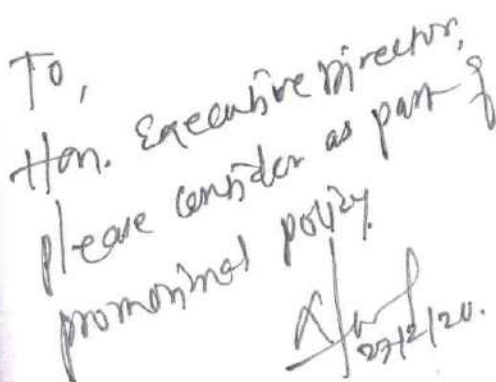 To,
Hon. Executive Director,
please consider as part of
promotional policy.
27/2/20.